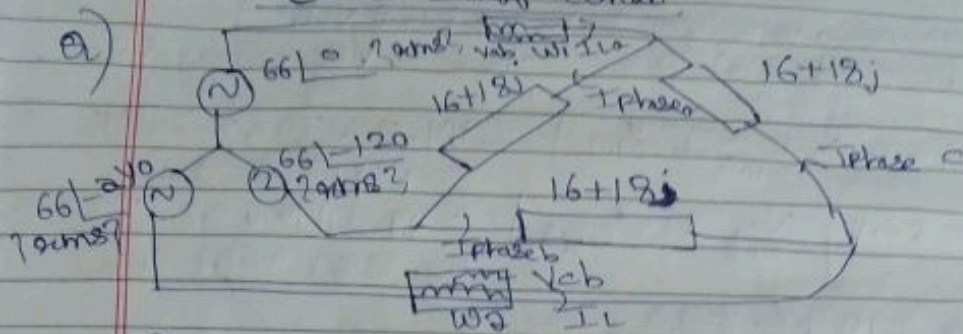 Q)
66∠0 ?rms?, Vab, W1 ILa
16+18j
16+18j
Iphasea
66∠-120
?rms?,
66∠-240
?rms?
Iphase c
16+18j
Iphaseb
Vcb
W2 IL